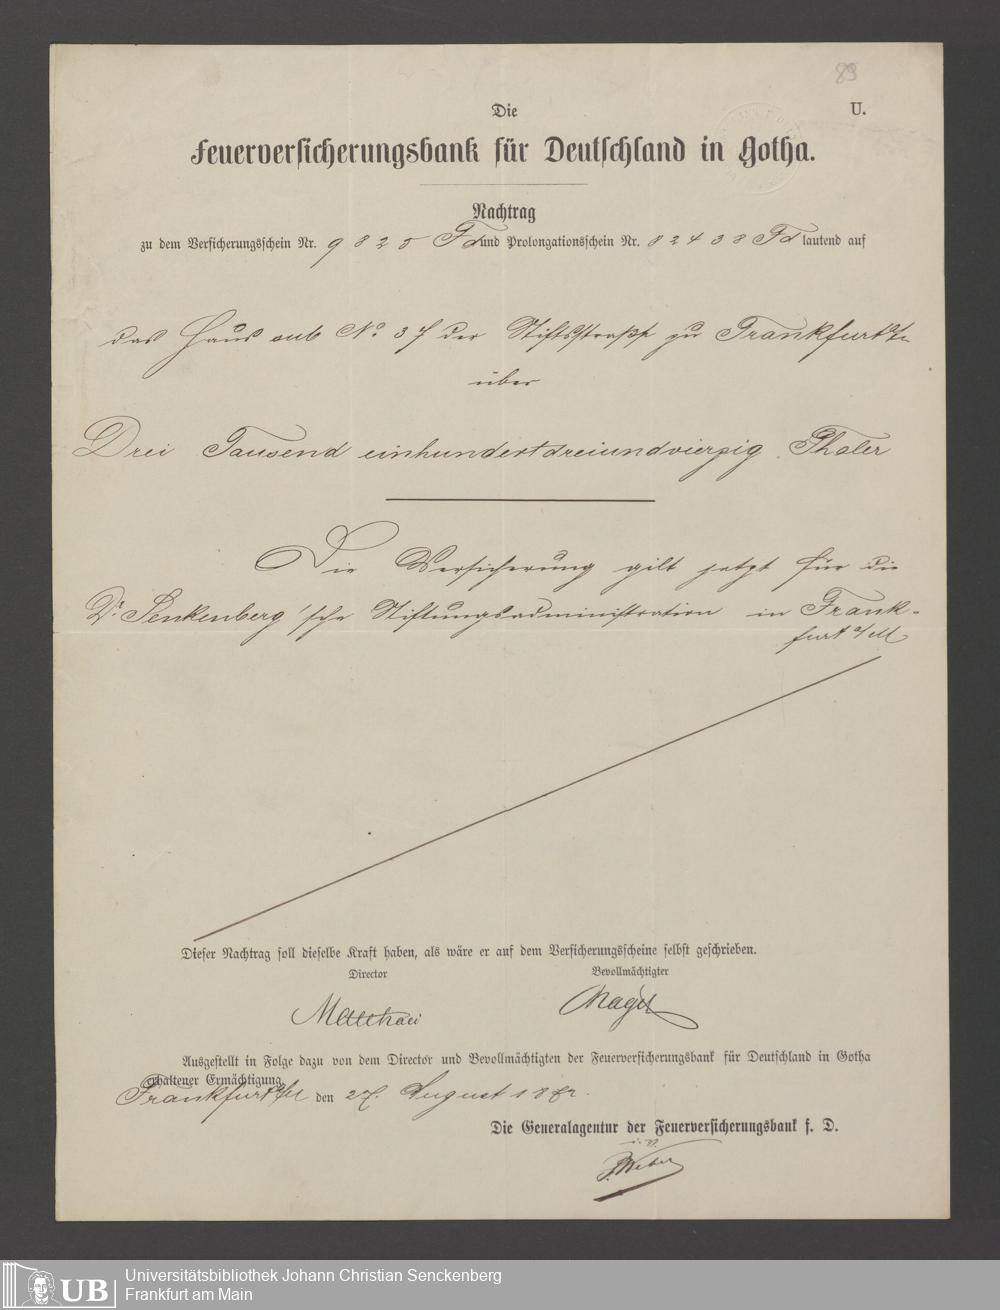 89
U.
Die
Feuerversicherungsbank für Deutschland in Gotha.
Nachtrag
zu dem Versicherungsschein Nr. 9825 Fd und Prolongationsschein Nr. 82438 Fd lautend auf
das Haus sub No. 37 der Stiftsstraße zu Frankfurt a/m
über
Drei Tausend einhundertdreiundvierzig Thaler
Die Versicherung gilt jetzt für die
Dr. Senkenberg'sche Stiftungsadministration in Frank-
furt a/M
Dieser Nachtrag soll dieselbe Kraft haben, als wäre er auf dem Versicherungsscheine selbst geschrieben.
Director Bevollmächtigter
Matthaei Nagel
Ausgestellt in Folge dazu von dem Director und Bevollmächtigten der Feuerversicherungsbank für Deutschland in Gotha
erhaltener Ermächtigung
Frankfurt a/M den 27. August 1872.
Die Generalagentur der Feuerversicherungsbank f. D.
i. V.
Weber
UB
Universitätsbibliothek Johann Christian Senckenberg
Frankfurt am Main